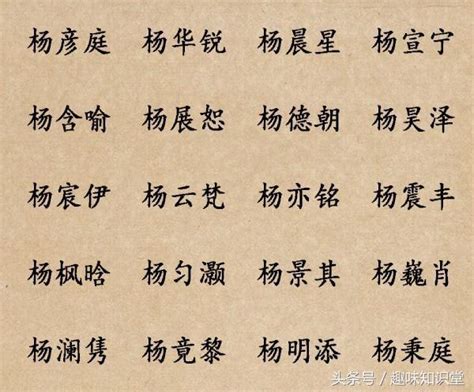 杨彦庭 杨华锐 杨晨星 杨宣宁
杨含喻 杨展恕 杨德朝 杨昊泽
杨宸伊 杨云梵 杨亦铭 杨震丰
杨枫晗 杨匀灏 杨景其 杨巍肖
杨澜隽 杨竟黎 杨明添 杨秉庭
头条号 / 趣味知识堂